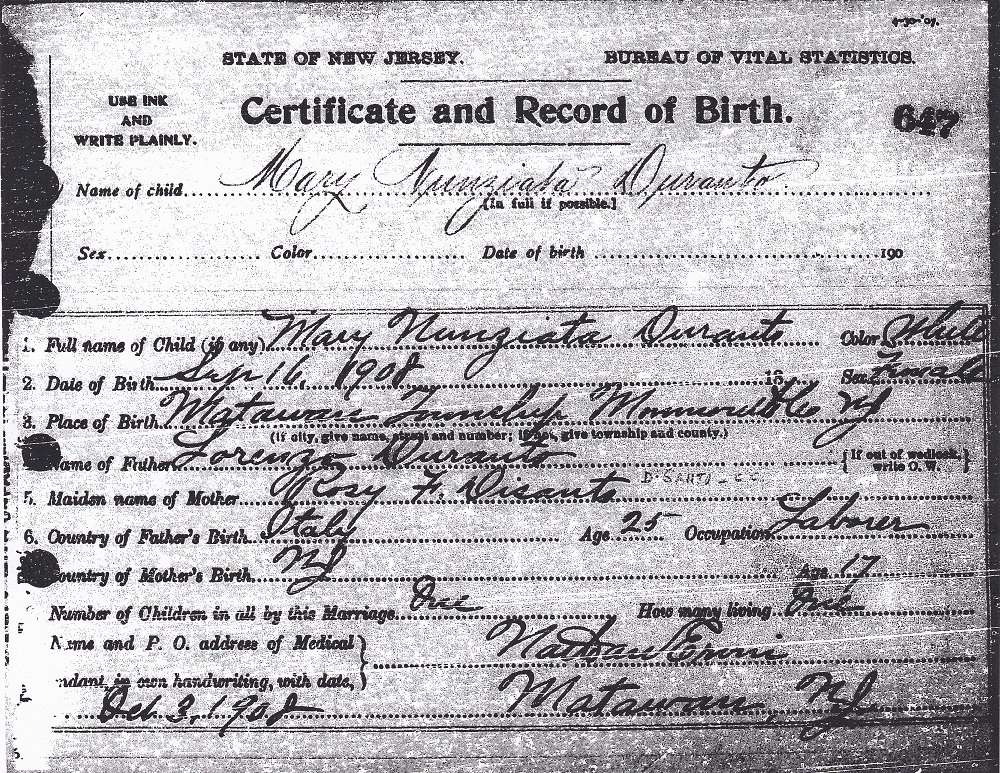 4-30-'07.
STATE OF NEW JERSEY. BUREAU OF VITAL STATISTICS.
USE INK
AND
WRITE PLAINLY.
Certificate and Record of Birth.
647
Name of child Mary Nunziata Duranto
[In full if possible.]
Sex Color Date of birth 190
1. Full name of Child (if any) Mary Nunziata Duranto Color White
2. Date of Birth Sep 16, 1908 18 Sex Female
3. Place of Birth Matawan Township Monmouth Co NJ
(If city, give name, street and number; if not, give township and county.)
Name of Father Lorenzo Duranto {If out of wedlock, write O. W.}
5. Maiden name of Mother Rosy F. Disanto
6. Country of Father's Birth Italy Age 25 Occupation Laborer
Country of Mother's Birth NJ Age 17
Number of Children in all by this Marriage One How many living One
Name and P. O. address of Medical
Nathan Ervin
ndant, in own handwriting, with date,
Matawan, NJ
Oct 3, 1908